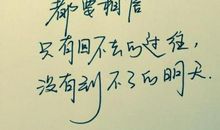 都要相信
只有回不去的过往,
没有到不了的明天.